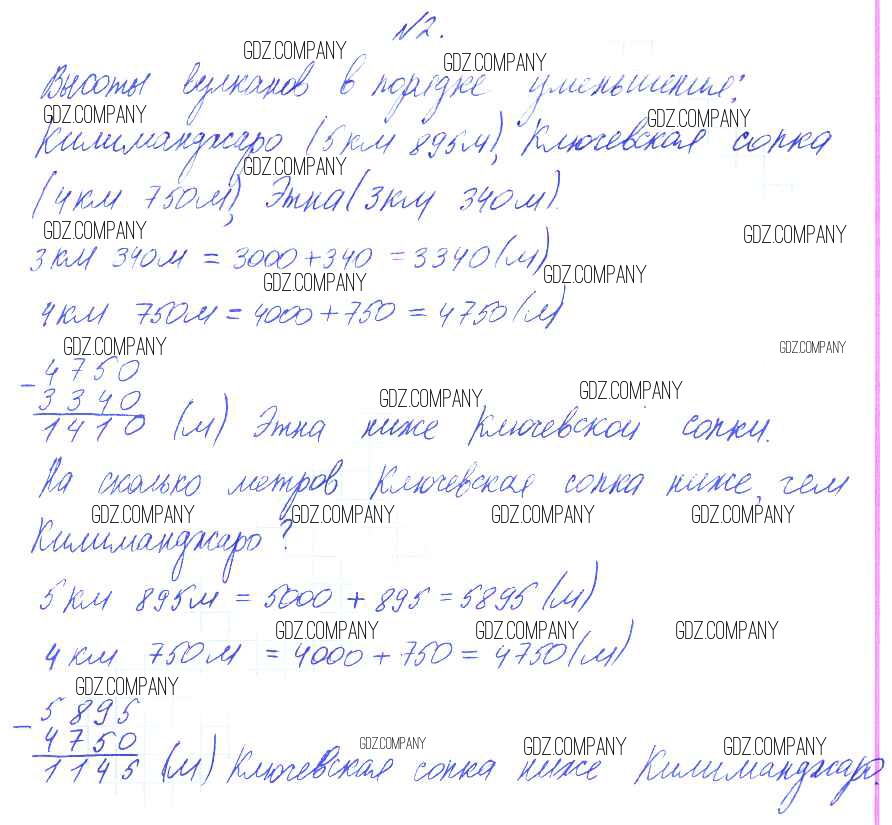 №2.
GDZ.COMPANY GDZ.COMPANY
Высоты вулканов в порядке уменьшения:
GDZ.COMPANY GDZ.COMPANY
Килиманджаро (5км 895м), Ключевская сопка
GDZ.COMPANY
(4км 750м), Этна (3км 340м).
GDZ.COMPANY GDZ.COMPANY
3км 340м = 3000+340 = 3340(м)
GDZ.COMPANY GDZ.COMPANY
4км 750м = 4000+750 = 4750(м)
GDZ.COMPANY GDZ.COMPANY
- 4750
GDZ.COMPANY GDZ.COMPANY
3340
1410 (м) Этна ниже Ключевской сопки.
На сколько метров Ключевская сопка ниже, чем
GDZ.COMPANY GDZ.COMPANY GDZ.COMPANY GDZ.COMPANY
Килиманджаро?
5км 895м = 5000 + 895 = 5895(м)
GDZ.COMPANY GDZ.COMPANY GDZ.COMPANY
4км 750м = 4000+750 = 4750(м)
GDZ.COMPANY
- 5895
4750
GDZ.COMPANY GDZ.COMPANY GDZ.COMPANY
1145 (м) Ключевская сопка ниже Килиманджаро.